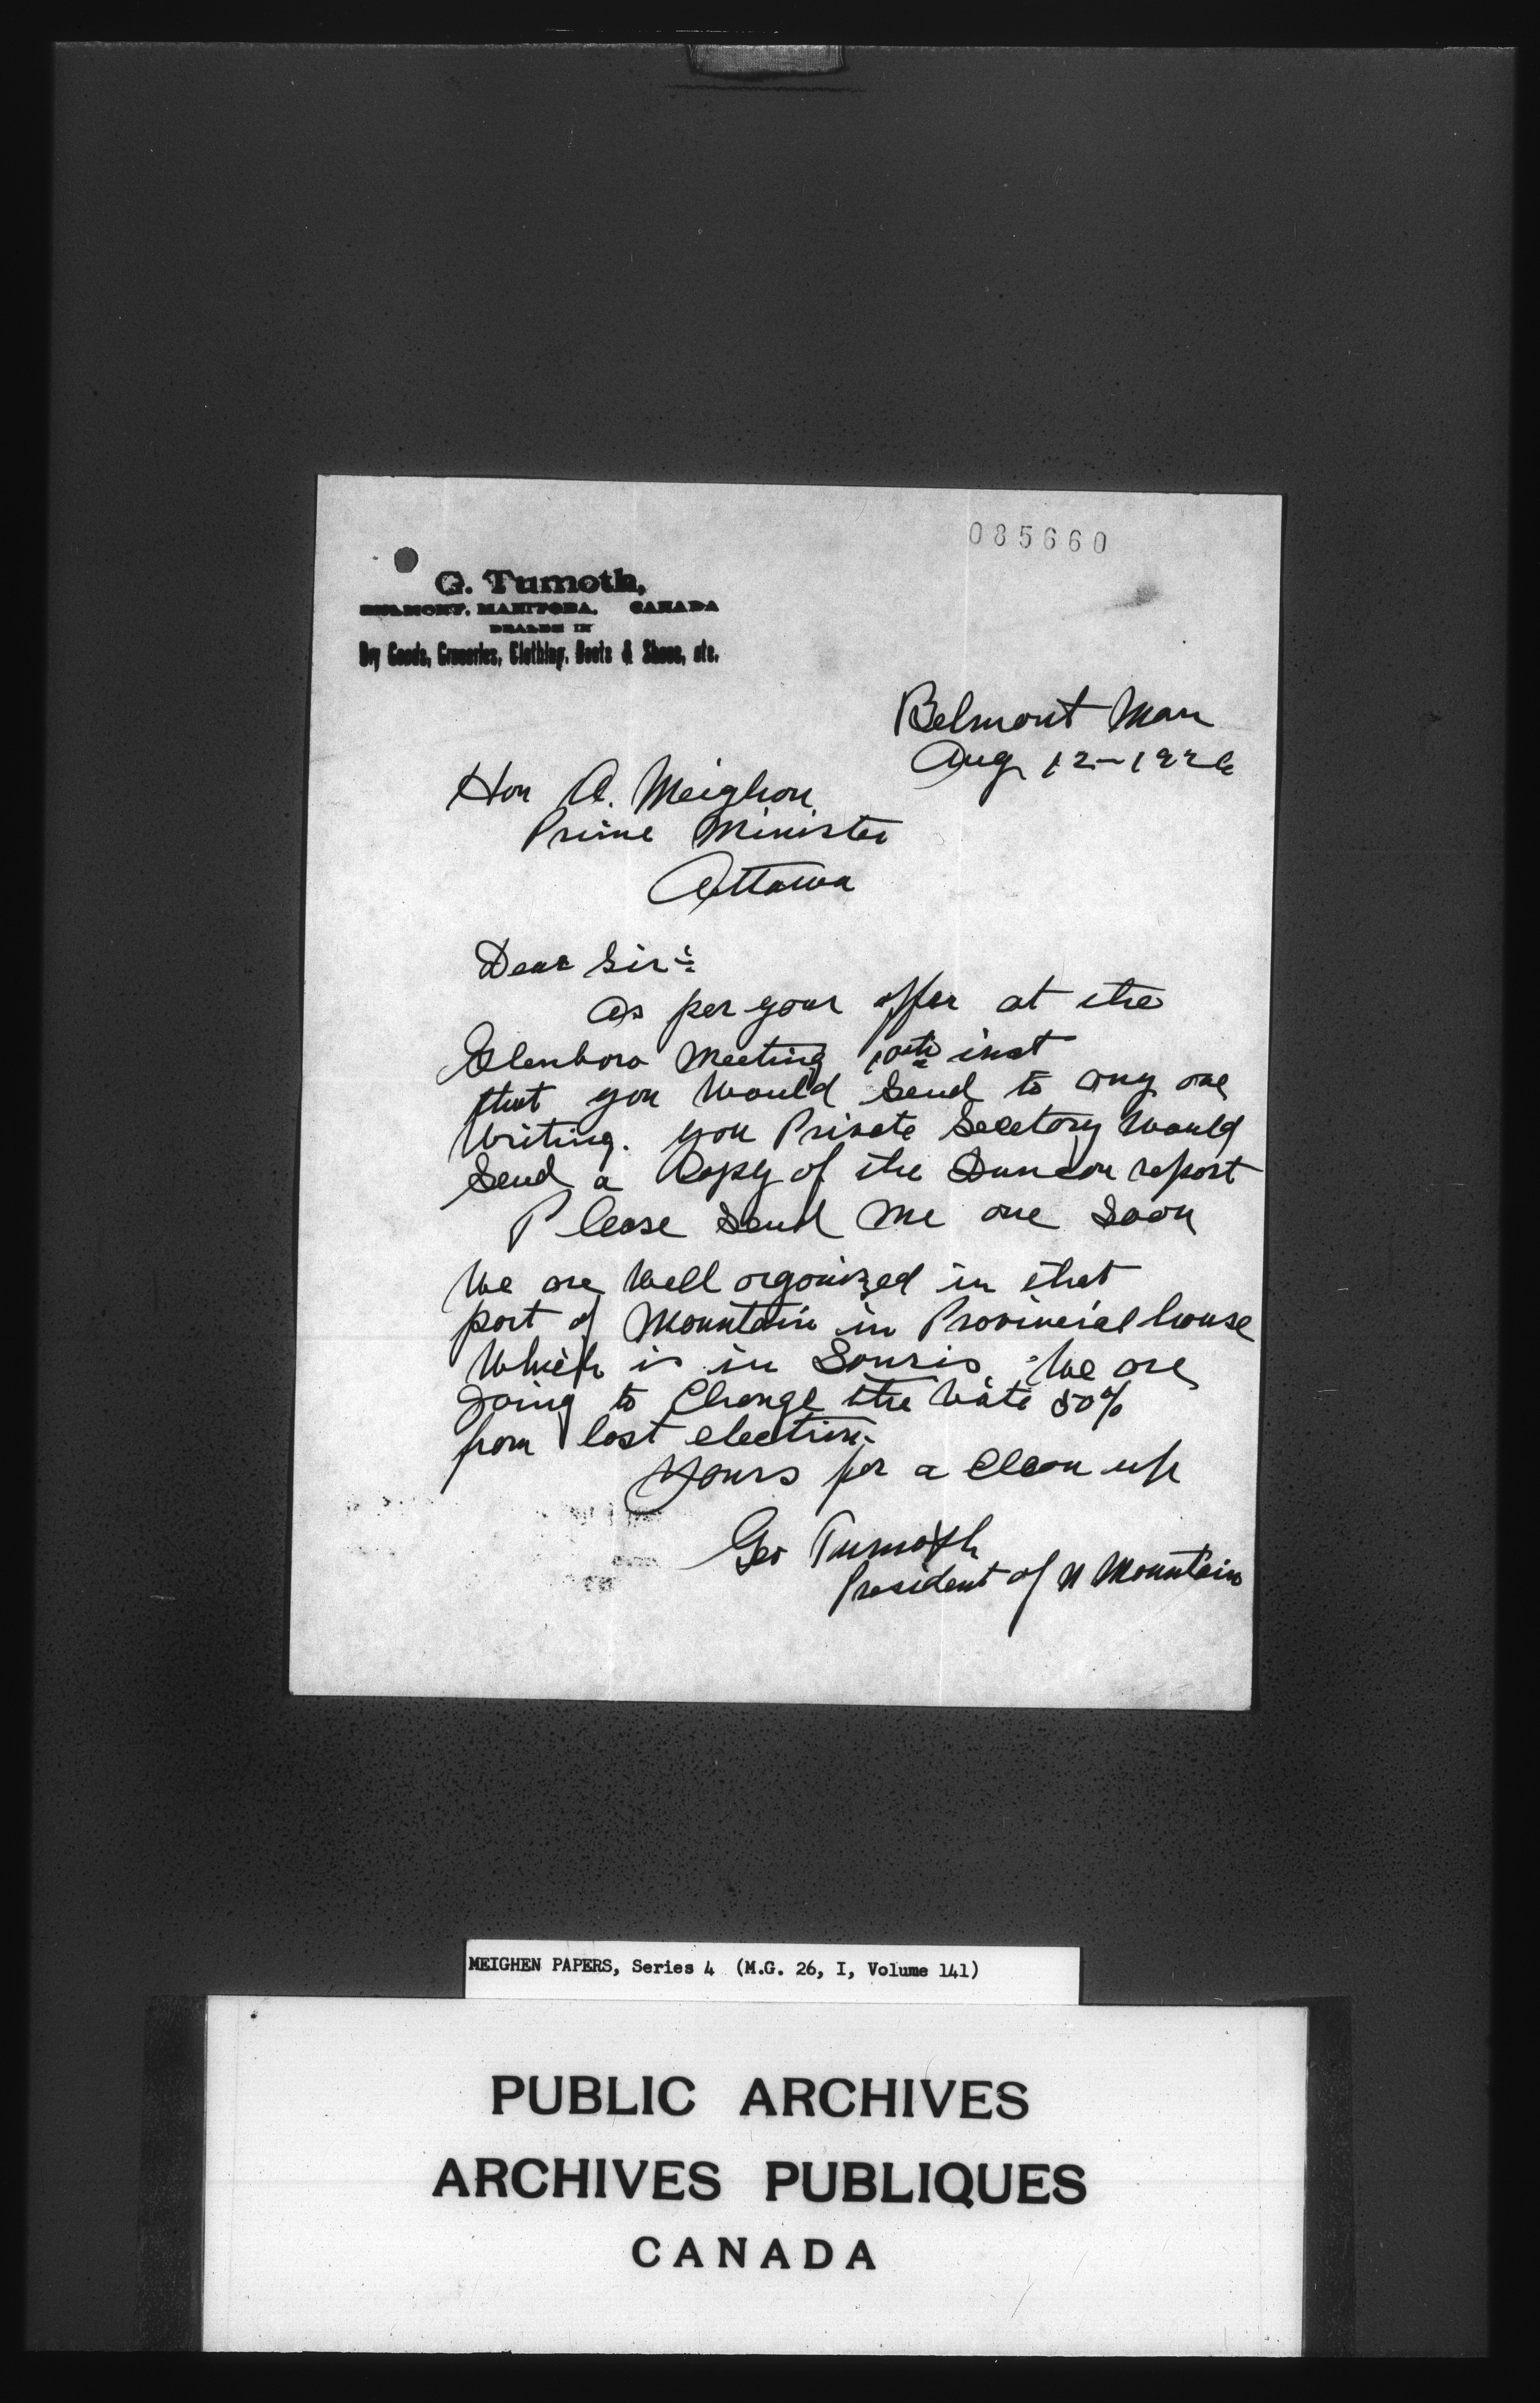 085660
G. Tumoth,
BELMONT, MANITOBA, CANADA
DEALER IN
Dry Goods, Groceries, Clothing, Boots & Shoes, etc.
Belmont Man
Aug 12-1926
Hon A. Meighon
Prime Minister
Ottawa
Dear Sir:
As per your offer at the
Glenboro Meeting 10th inst
that you would send to any one
writing. you Private Secetory would
send a Copy of the Duncan report
Please send me one soon
We are well organized in that
part of Mountain in Provincial house
which is in Souris. We are
going to Change the vote 50%
from last election.
Yours for a clean up
Geo Tumoth
President of N Mountain
MEIGHEN PAPERS, Series 4 (M.G. 26, I, Volume 141)
PUBLIC ARCHIVES
ARCHIVES PUBLIQUES
CANADA